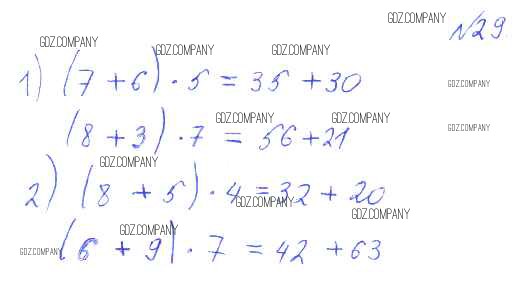 №29.
GDZ.COMPANY
GDZ.COMPANY GDZ.COMPANY GDZ.COMPANY
1) (7 + 6) · 5 = 35 + 30
GDZ.COMPANY
GDZ.COMPANY GDZ.COMPANY
(8 + 3) · 7 = 56 + 21
GDZ.COMPANY
GDZ.COMPANY
2) (8 + 5) · 4 = 32 + 20
GDZ.COMPANY
GDZ.COMPANY
GDZ.COMPANY
(6 + 9) · 7 = 42 + 63
GDZ.COMPANY